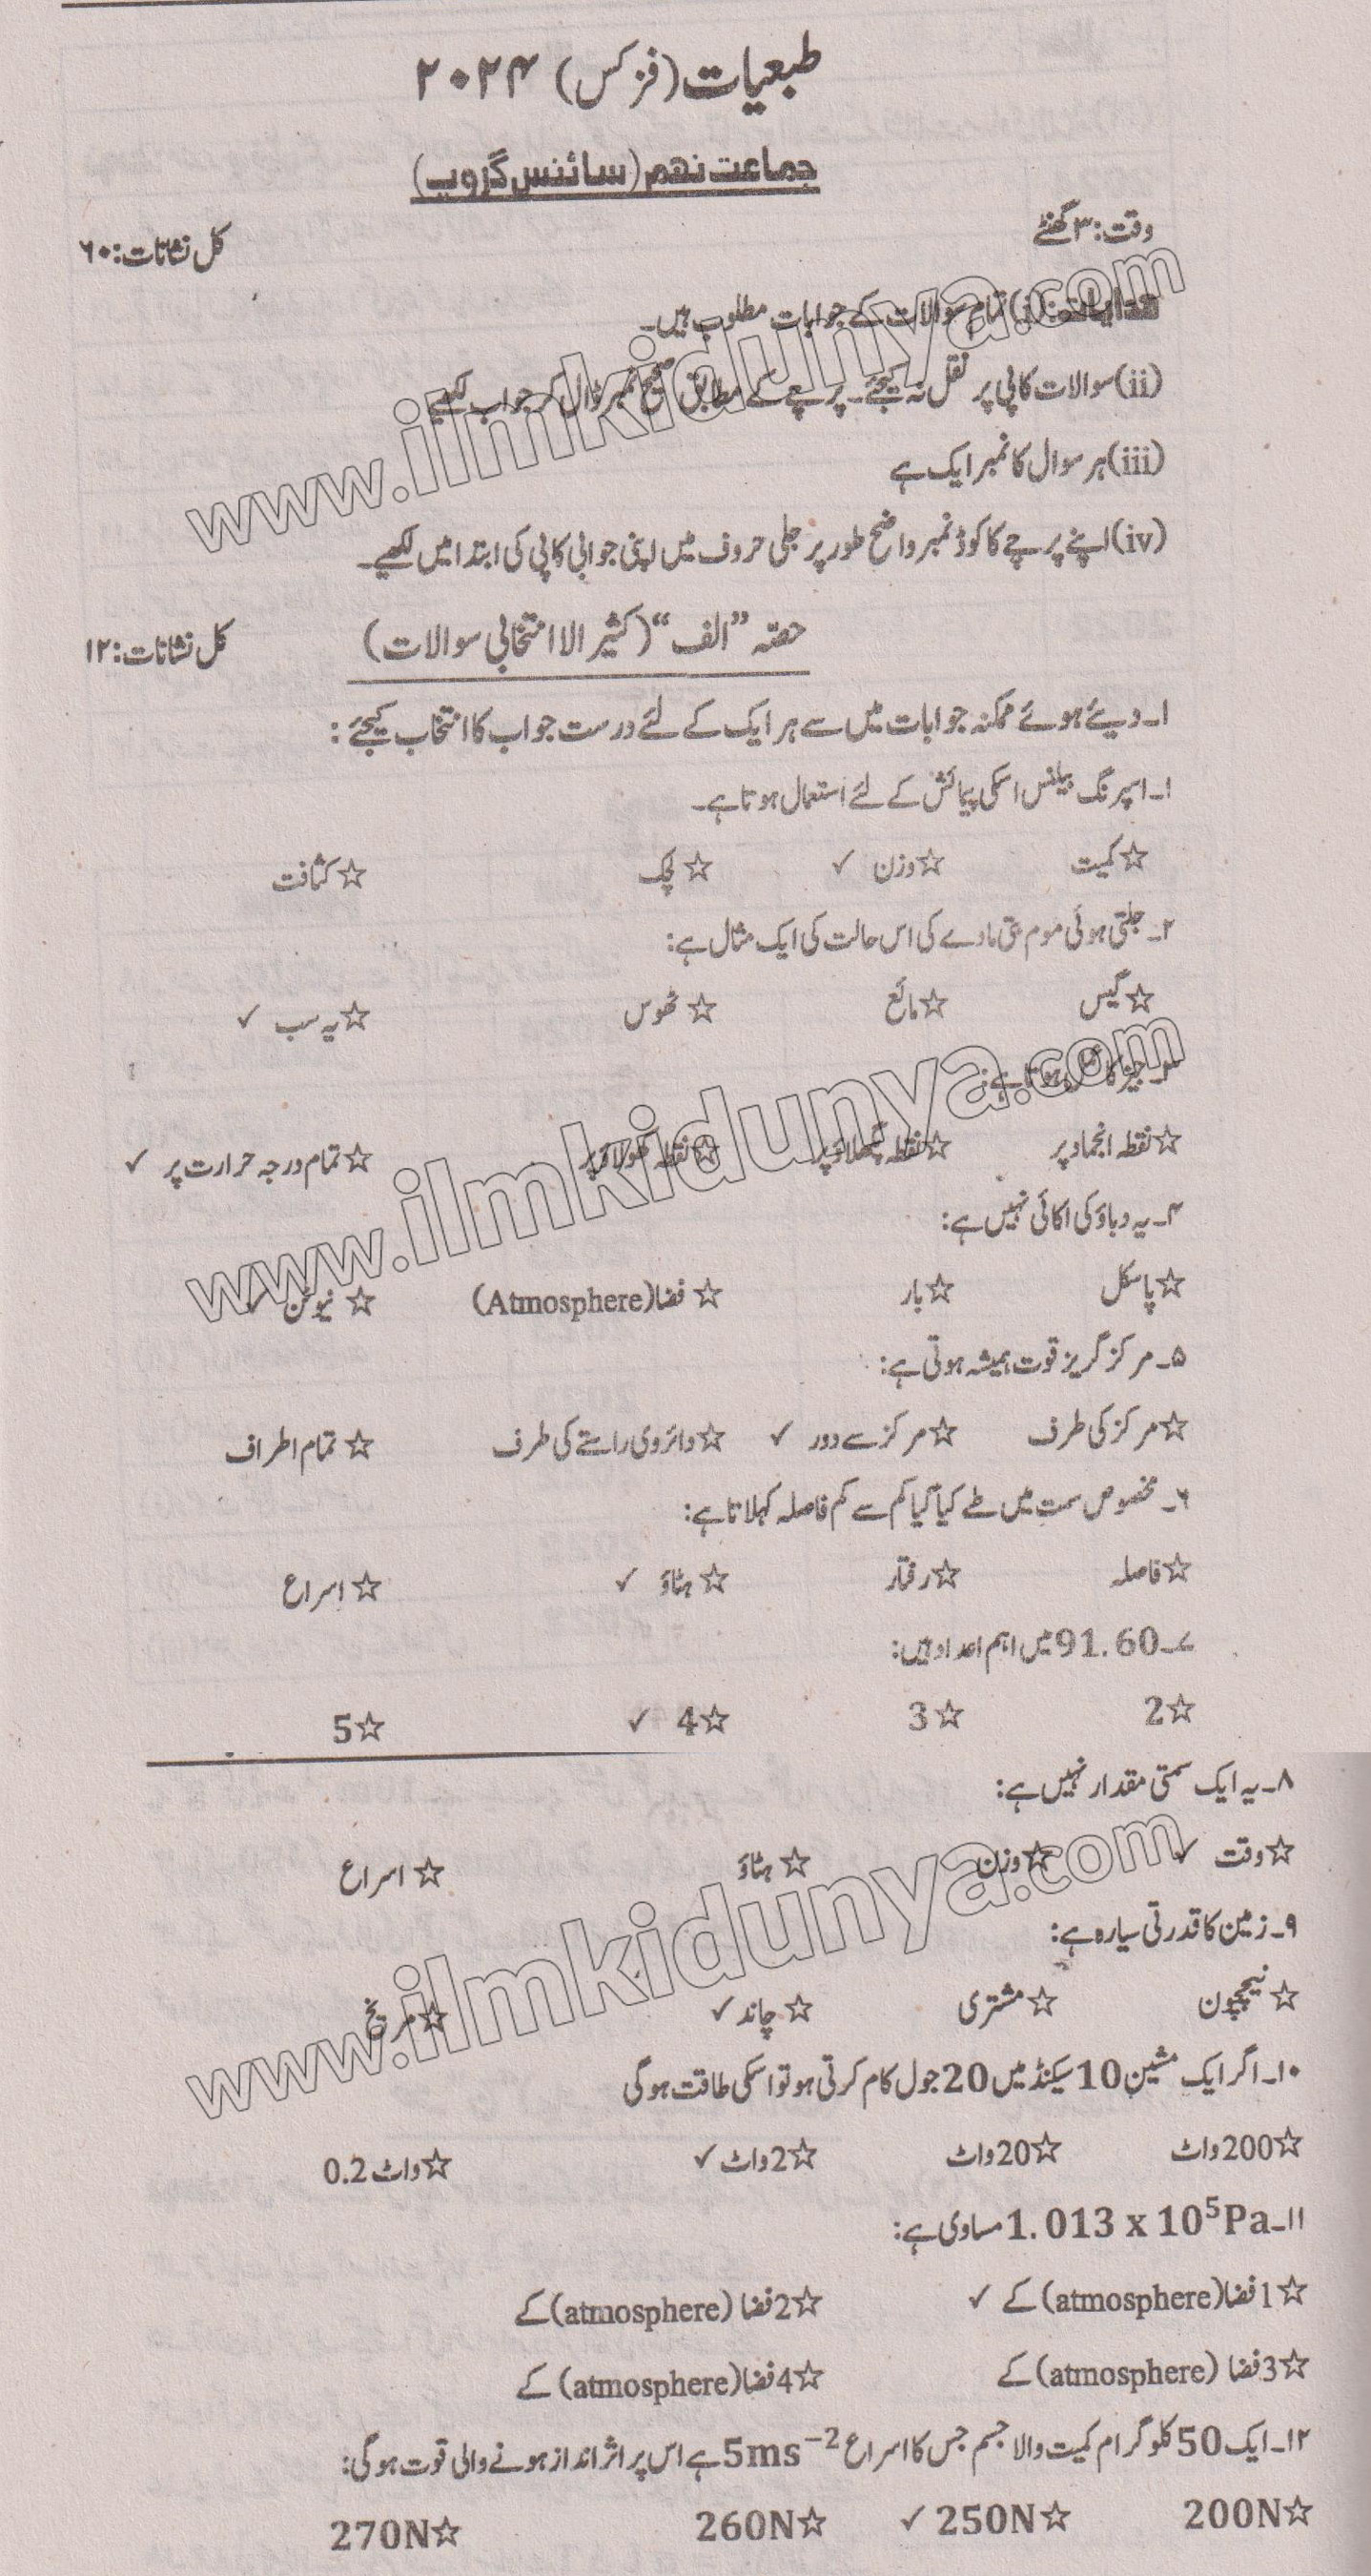 طبعیات (فزکس) ۲۰۲۴
جماعت نہم (سائنس گروپ)
وقت: ۳ گھنٹے کل نشانات: ۶۰
ھدایات: (i) تمام سوالات کے جوابات مطلوب ہیں۔
(ii) سوالات کاپی پر نقل نہ کیجئے۔ پرچے کے مطابق صحیح نمبر ڈال کر جواب لکھیے
(iii) ہر سوال کا نمبر ایک ہے
(iv) اپنے پرچے کا کوڈ نمبر واضح طور پر جلی حروف میں اپنی جوابی کاپی کی ابتدا میں لکھیے۔
حصّہ ”الف“ (کثیر الا انتخابی سوالات) کل نشانات: ۱۲
۱۔ دیئے ہوئے ممکنہ جوابات میں سے ہر ایک کے لئے درست جواب کا انتخاب کیجئے :
۱۔ اسپرنگ بیلنس اسکی پیمائش کے لئے استعمال ہوتا ہے۔
☆ کمیت ☆ وزن ✓ ☆ لچک ☆ کثافت
۲۔ جلتی ہوئی موم بتی مادے کی اس حالت کی ایک مثال ہے:
☆ گیس ☆ مائع ☆ ٹھوس ☆ یہ سب ✓
۳۔ ہوتا ہے:
☆ نقطہ انجماد پر ☆ نقطہ پگھلاؤ پر ☆ نقطہ کھولاؤ پر ☆ تمام درجہ حرارت پر ✓
۴۔ یہ دباؤ کی اکائی نہیں ہے:
☆ پاسکل ☆ بار ☆ فضا (Atmosphere) ☆ نیوٹن ✓
۵۔ مرکز گریز قوت ہمیشہ ہوتی ہے:
☆ مرکز کی طرف ☆ مرکز سے دور ✓ ☆ دائروی راستے کی طرف ☆ تمام اطراف
۶۔ مخصوص سمت میں طے کیا گیا کم سے کم فاصلہ کہلاتا ہے:
☆ فاصلہ ☆ رفتار ☆ ہٹاؤ ✓ ☆ اسراع
۷۔ 91.60 میں اہم اعداد ہیں:
☆ 2 ☆ 3 ☆ 4 ✓ ☆ 5
۸۔ یہ ایک سمتی مقدار نہیں ہے:
☆ وقت ✓ ☆ وزن ☆ ہٹاؤ ☆ اسراع
۹۔ زمین کا قدرتی سیارہ ہے:
☆ نیپچون ☆ مشتری ☆ چاند ✓ ☆ مریخ
۱۰۔ اگر ایک مشین 10 سیکنڈ میں 20 جول کام کرتی ہو تو اسکی طاقت ہوگی
☆ 200 واٹ ☆ 20 واٹ ☆ 2 واٹ ✓ ☆ واٹ 0.2
۱۱۔ 1.013 x 10⁵Pa مساوی ہے:
☆ 1 فضا (atmosphere) کے ✓ ☆ 2 فضا (atmosphere) کے
☆ 3 فضا (atmosphere) کے ☆ 4 فضا (atmosphere) کے
۱۲۔ ایک 50 کلو گرام کمیت والا جسم جس کا اسراع 5ms⁻² ہے اس پر اثر انداز ہونے والی قوت ہوگی:
☆ 200N ☆ 250N ✓ ☆ 260N ☆ 270N
www.ilmkidunya.com
www.ilmkidunya.com
www.ilmkidunya.com